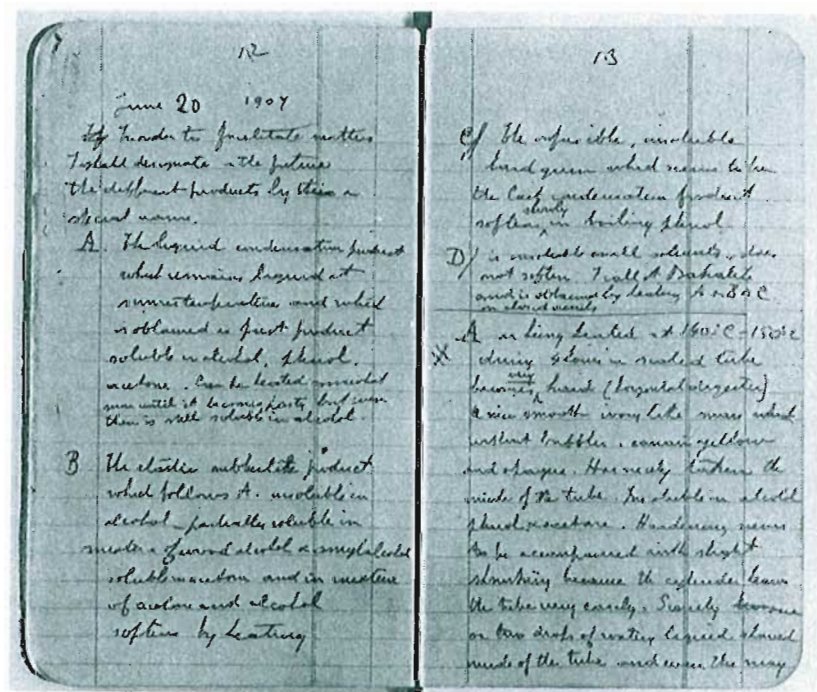 12
June 20 1907
In order to facilitate matters
I shall designate in the future
the different products by this a
special name.
A. The liquid condensation product
which remains liquid at
temperature and which
is obtained as first product
soluble in alcohol, phenol,
acetone. Can be heated somewhat
more until it becomes pasty but even
then is still soluble in alcohol.
B The elastic product
which follows A. insoluble in
alcohol - partially soluble in
of wood alcohol & amylalcohol
soluble in acetone and in mixture
of acetone and alcohol
softens by heating
13
C/ The infusible, insoluble
hard gum which seems to be
the last condensation product
softens slowly in boiling phenol
D/ is insoluble in all solvents, does
not soften I call it Bakalite
and is obtained by heating A or B or C
in closed vessels
A on being heated at 160°C - 150°C
during in sealed tube
becomes very hard (horizontal digester)
A nice smooth ivory like mass
without bubbles, yellow
and opaque. Has nicely taken the
of the tube. Insoluble in alcohol
phenol, acetone. Hardening seems
to be accompanied with slight
shrinking because the cylinder leaves
the tube very easily. Scarcely one
or two drops of watery liquid showed
inside of the tube and even the may